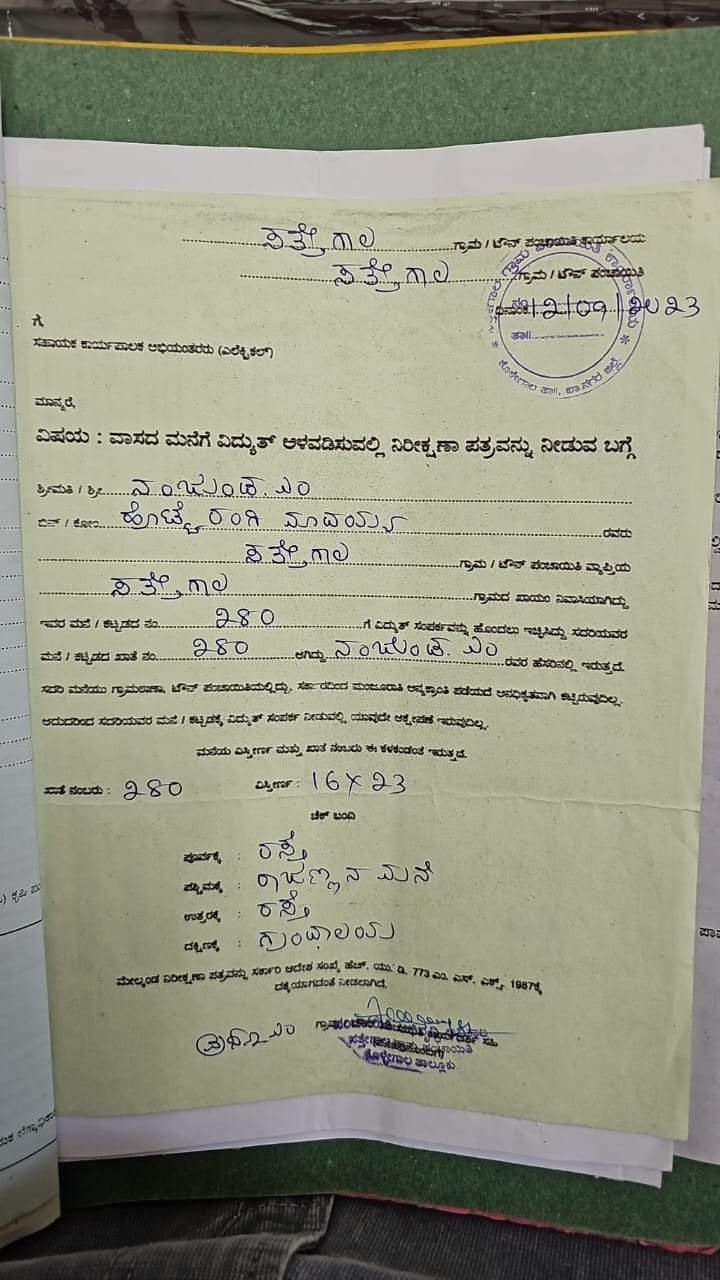 ಸತ್ತೇಗಾಲ ಗ್ರಾಮ / ಟೌನ್ ಪಂಚಾಯಿತಿ ಕಾರ್ಯಾಲಯ
ಸತ್ತೇಗಾಲ ಗ್ರಾಮ / ಟೌನ್ ಪಂಚಾಯಿತಿ
ದಿನಾಂಕ 12/09/2023
ತಾ||
ಕೊಳ್ಳೇಗಾಲ ತಾ||, ಚಾ.ನಗರ ಜಿಲ್ಲೆ.
ಗೆ,
ಸಹಾಯಕ ಕಾರ್ಯಪಾಲಕ ಅಭಿಯಂತರರು (ಎಲೆಕ್ಟ್ರಿಕಲ್)
ಮಾನ್ಯರೆ,
ವಿಷಯ : ವಾಸದ ಮನೆಗೆ ವಿದ್ಯುತ್ ಅಳವಡಿಸುವಲ್ಲಿ ನಿರೀಕ್ಷಣಾ ಪತ್ರವನ್ನು ನೀಡುವ ಬಗ್ಗೆ
ಶ್ರೀಮತಿ / ಶ್ರೀ ನಂಜುಂಡ. ಎಂ
ಬಿನ್ / ಕೋಂ ಹೊಟ್ಟೆ ರಂಗಿ ಮಾದಯ್ಯ ರವರು
ಸತ್ತೇಗಾಲ ಗ್ರಾಮ / ಟೌನ್ ಪಂಚಾಯಿತಿ ವ್ಯಾಪ್ತಿಯ
ಸತ್ತೇಗಾಲ ಗ್ರಾಮದ ಖಾಯಂ ನಿವಾಸಿಯಾಗಿದ್ದು
ಇವರ ಮನೆ / ಕಟ್ಟಡದ ನಂ. ೨೪೦ ಗೆ ವಿದ್ಯುತ್ ಸಂಪರ್ಕವನ್ನು ಹೊಂದಲು ಇಚ್ಚಿಸಿದ್ದು ಸದರಿಯವರ
ಮನೆ / ಕಟ್ಟಡದ ಖಾತೆ ನಂ. ೨೪೦ ಆಗಿದ್ದು ನಂಜುಂಡ. ಎಂ ರವರ ಹೆಸರಿನಲ್ಲಿ ಇರುತ್ತದೆ.
ಸದರಿ ಮನೆಯು ಗ್ರಾಮಠಾಣಾ, ಟೌನ್ ಪಂಚಾಯಿತಿಯಲ್ಲಿದ್ದು, ಸರ್ಕಾರದಿಂದ ಮಂಜೂರಾತಿ ಅನ್ಯಕ್ರಾಂತಿ ಪಡೆಯದೆ ಅನಧಿಕೃತವಾಗಿ ಕಟ್ಟಿರುವುದಿಲ್ಲ.
ಆದುದರಿಂದ ಸದರಿಯವರ ಮನೆ / ಕಟ್ಟಡಕ್ಕೆ ವಿದ್ಯುತ್ ಸಂಪರ್ಕ ನೀಡುವಲ್ಲಿ ಯಾವುದೇ ಆಕ್ಷೇಪಣೆ ಇರುವುದಿಲ್ಲ.
ಮನೆಯ ವಿಸ್ತೀರ್ಣ ಮತ್ತು ಖಾತೆ ನಂಬರು ಈ ಕೆಳಕಂಡಂತೆ ಇರುತ್ತದೆ.
ಖಾತೆ ನಂಬರು : ೨೪೦ ವಿಸ್ತೀರ್ಣ : 16 X 23
ಚೆಕ್ ಬಂದಿ
ಪೂರ್ವಕ್ಕೆ : ರಸ್ತೆ
ಪಶ್ಚಿಮಕ್ಕೆ : ರಾಜಣ್ಣನ ಮನೆ
ಉತ್ತರಕ್ಕೆ : ರಸ್ತೆ
ದಕ್ಷಿಣಕ್ಕೆ : ಗ್ರಂಥಾಲಯ
ಮೇಲ್ಕಂಡ ನಿರೀಕ್ಷಣಾ ಪತ್ರವನ್ನು ಸರ್ಕಾರಿ ಆದೇಶ ಸಂಖ್ಯೆ ಹೆಚ್. ಯು. ಡಿ. 773 ಎಂ. ಎಸ್. ಎಕ್ಸ್. 1987ಕ್ಕೆ
ದಕ್ಕೆಯಾಗದಂತೆ ನೀಡಲಾಗಿದೆ.
ಸತ್ತೇಗಾಲ ಗ್ರಾಮ ಪಂಚಾಯಿತಿ
ಕೊಳ್ಳೇಗಾಲ ತಾಲ್ಲೂಕು.